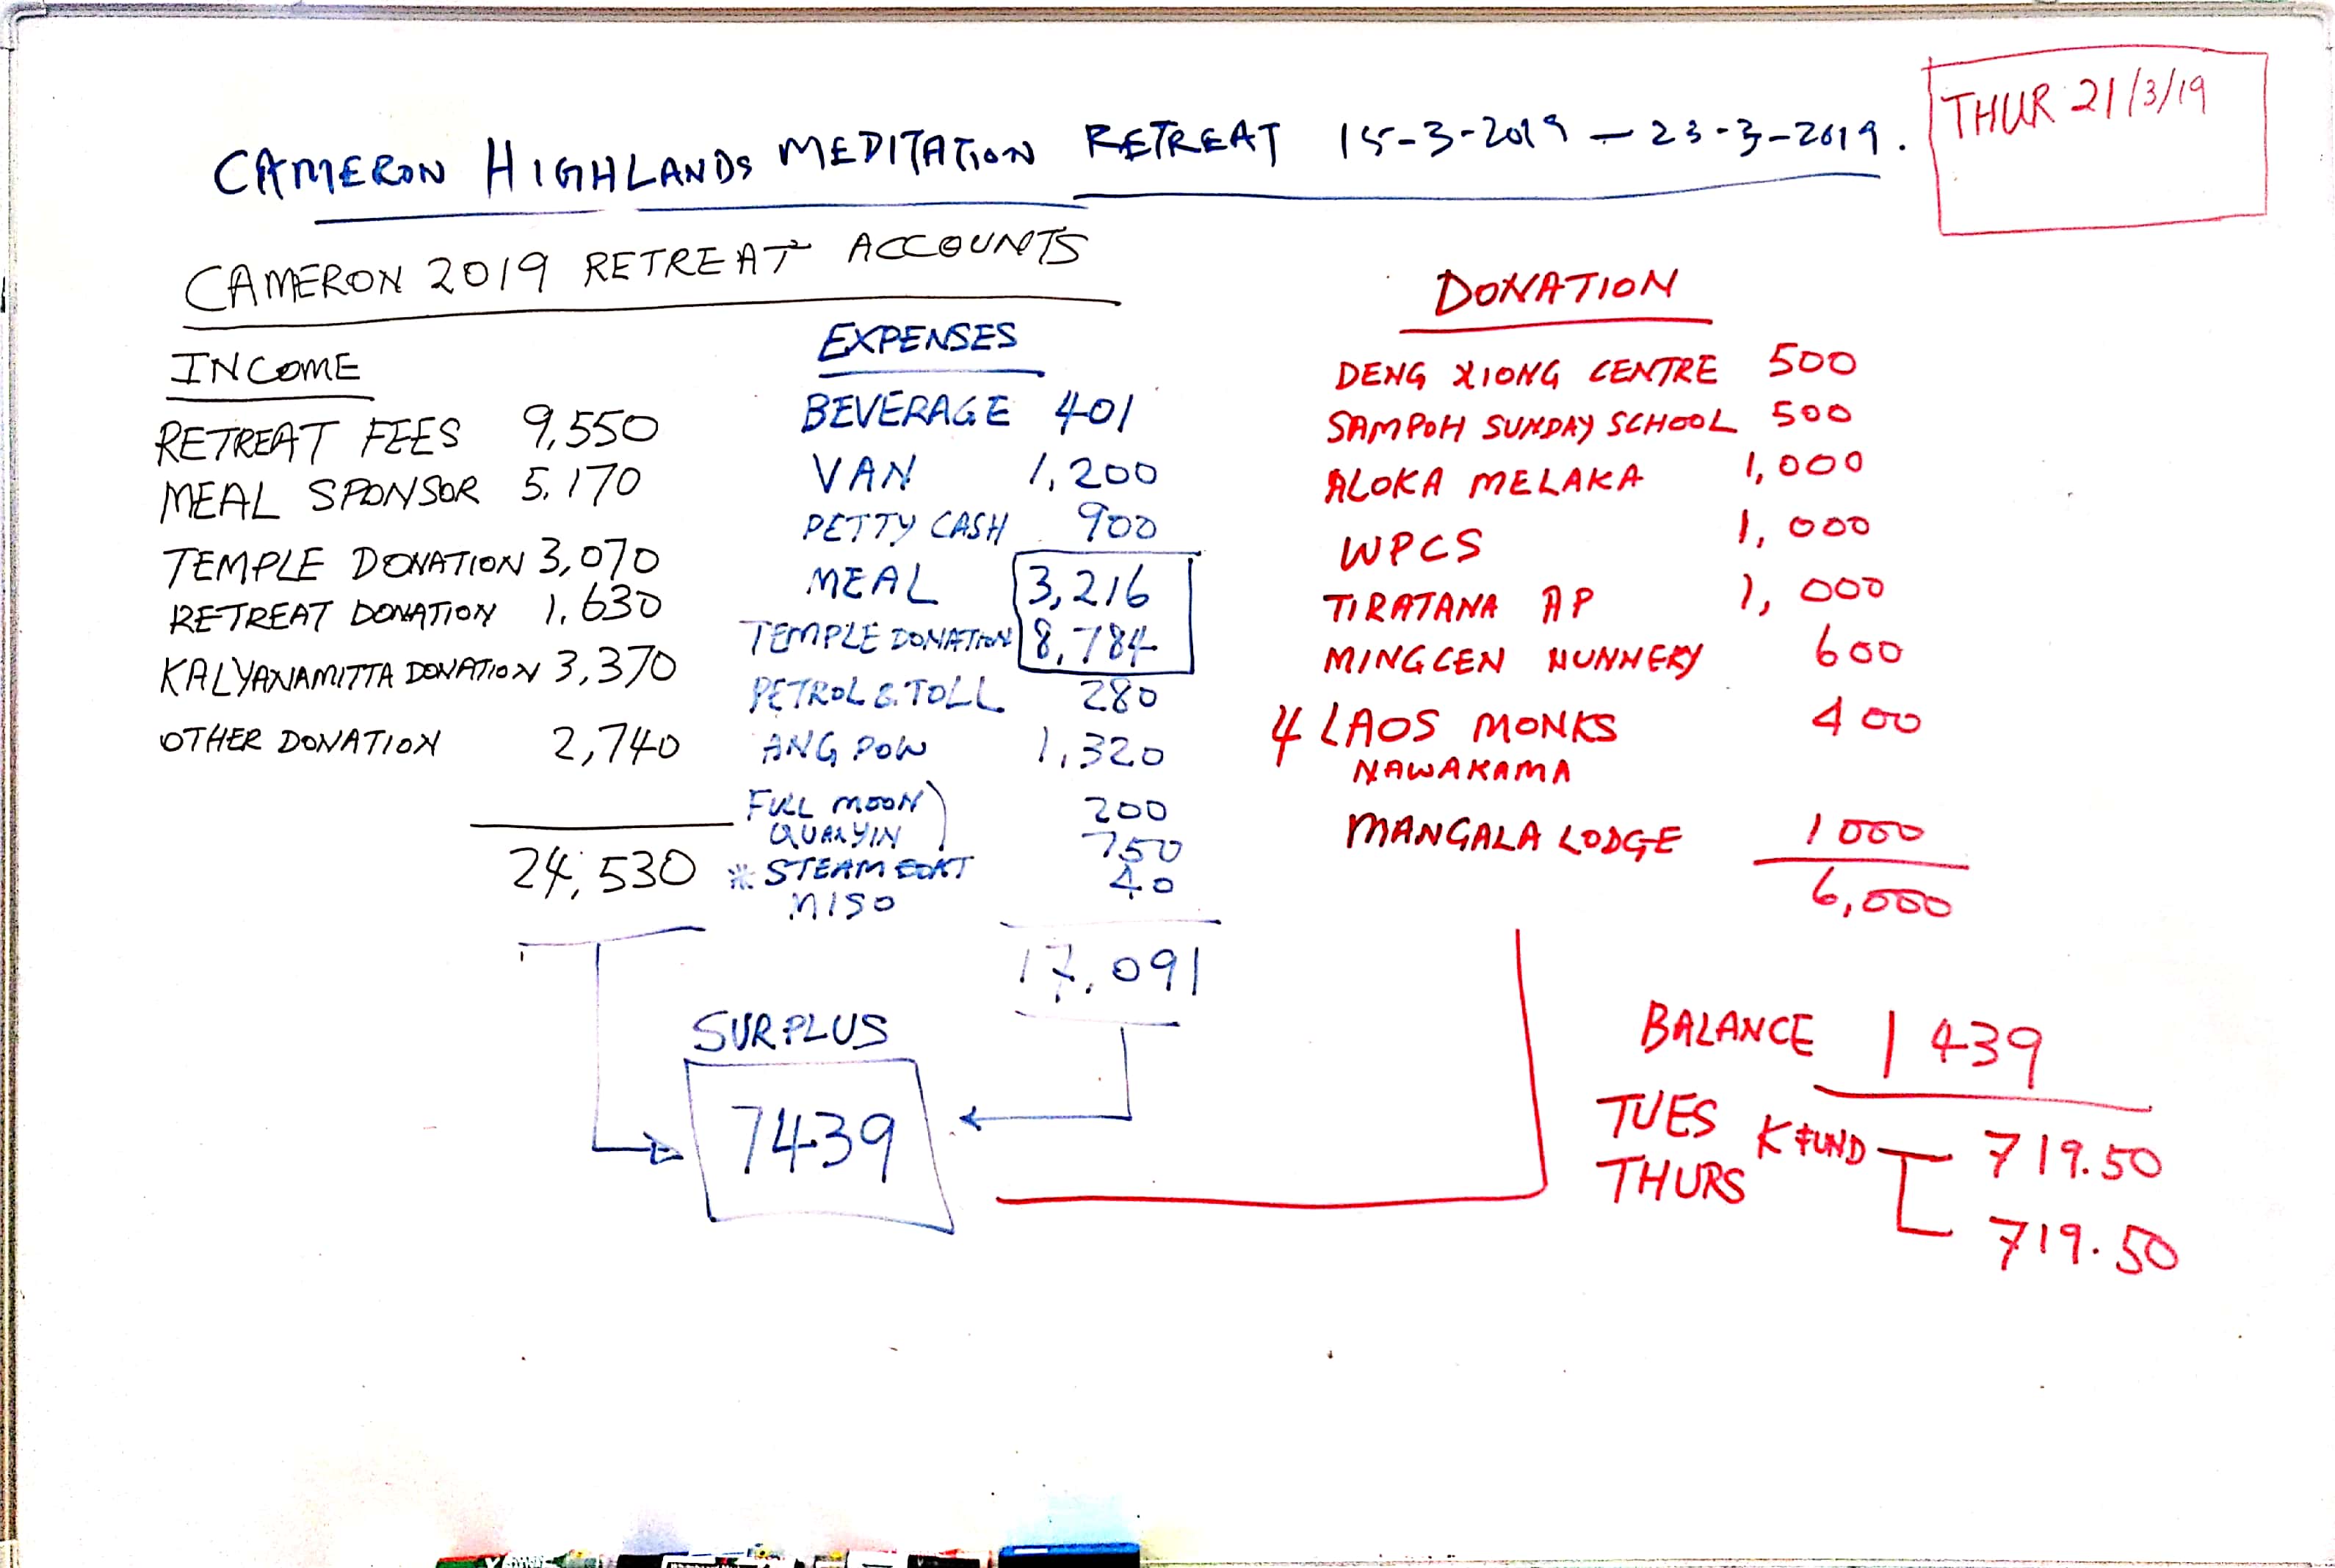 THUR 21/3/19
CAMERON HIGHLANDS MEDITATION RETREAT 15-3-2019 — 23-3-2019.
CAMERON 2019 RETREAT ACCOUNTS
INCOME
RETREAT FEES 9,550
MEAL SPONSOR 5,170
TEMPLE DONATION 3,070
RETREAT DONATION 1,630
KALYANAMITTA DONATION 3,370
OTHER DONATION 2,740
24,530
EXPENSES
BEVERAGE 401
VAN 1,200
PETTY CASH 900
MEAL 3,216
TEMPLE DONATION 8,784
PETROL & TOLL 280
ANG POW 1,320
FULL MOON) 200
QUANYIN 750
* STEAMBOAT 40
MISO
17,091
SURPLUS
7439
DONATION
DENG XIONG CENTRE 500
SAMPOH SUNDAY SCHOOL 500
ALOKA MELAKA 1,000
WPCS 1,000
TIRATANA AP 1,000
MINGCEN NUNNERY 600
4 LAOS MONKS 400
NAWAKAMA
MANGALA LODGE 1000
6,000
BALANCE 1439
TUES K FUND 719.50
THURS 719.50